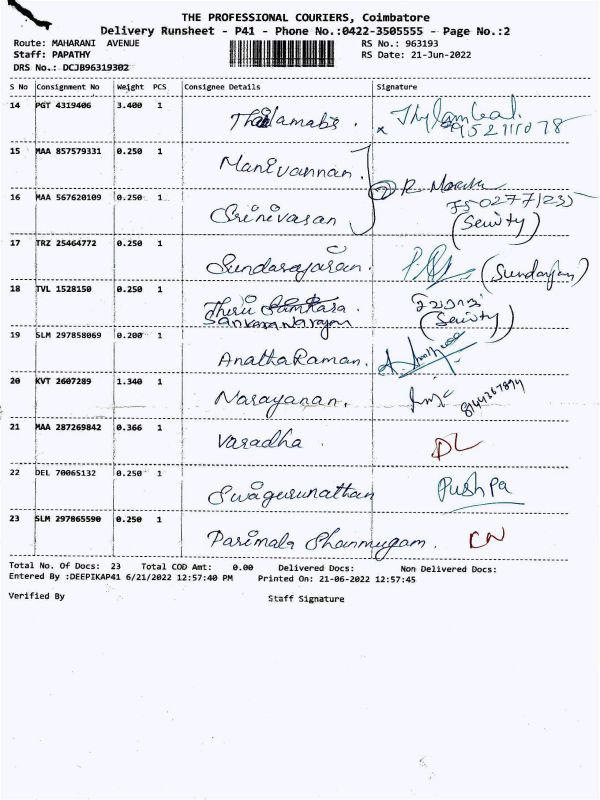 THE PROFESSIONAL COURIERS, Coimbatore
Delivery Runsheet - P41 - Phone No.:0422-3505555 - Page No.:2
Route: MAHARANI AVENUE RS No.: 963193
Staff: PAPATHY RS Date: 21-Jun-2022
DRS No.: DCJB96319302
S No Consignment No Weight PCS Consignee Details Signature
14 PGT 4319406 3.400 1
15 MAA 857579331 0.250 1 Manivannan.
16 MAA 567620109 0.250 1 Srinivasan (Seuity)
17 TRZ 25464772 0.250 1 Sundarajaran. (Sundarajan)
18 TVL 1528150 0.250 1 Thiru Sankara (Seuity)
Sankaranarayan
19 SLM 297858069 0.200 1 AnathaRaman.
20 KVT 2607289 1.340 1 Narayanan. 8144367894
21 MAA 287269842 0.366 1 Varadha DL
22 DEL 70065132 0.250 1 Swagurunathan Pushpa
23 SLM 297865590 0.250 1 Parimala Shanmugam. CN
Total No. Of Docs: 23 Total COD Amt: 0.00 Delivered Docs: Non Delivered Docs:
Entered By :DEEPIKAP41 6/21/2022 12:57:40 PM Printed On: 21-06-2022 12:57:45
Verified By Staff Signature